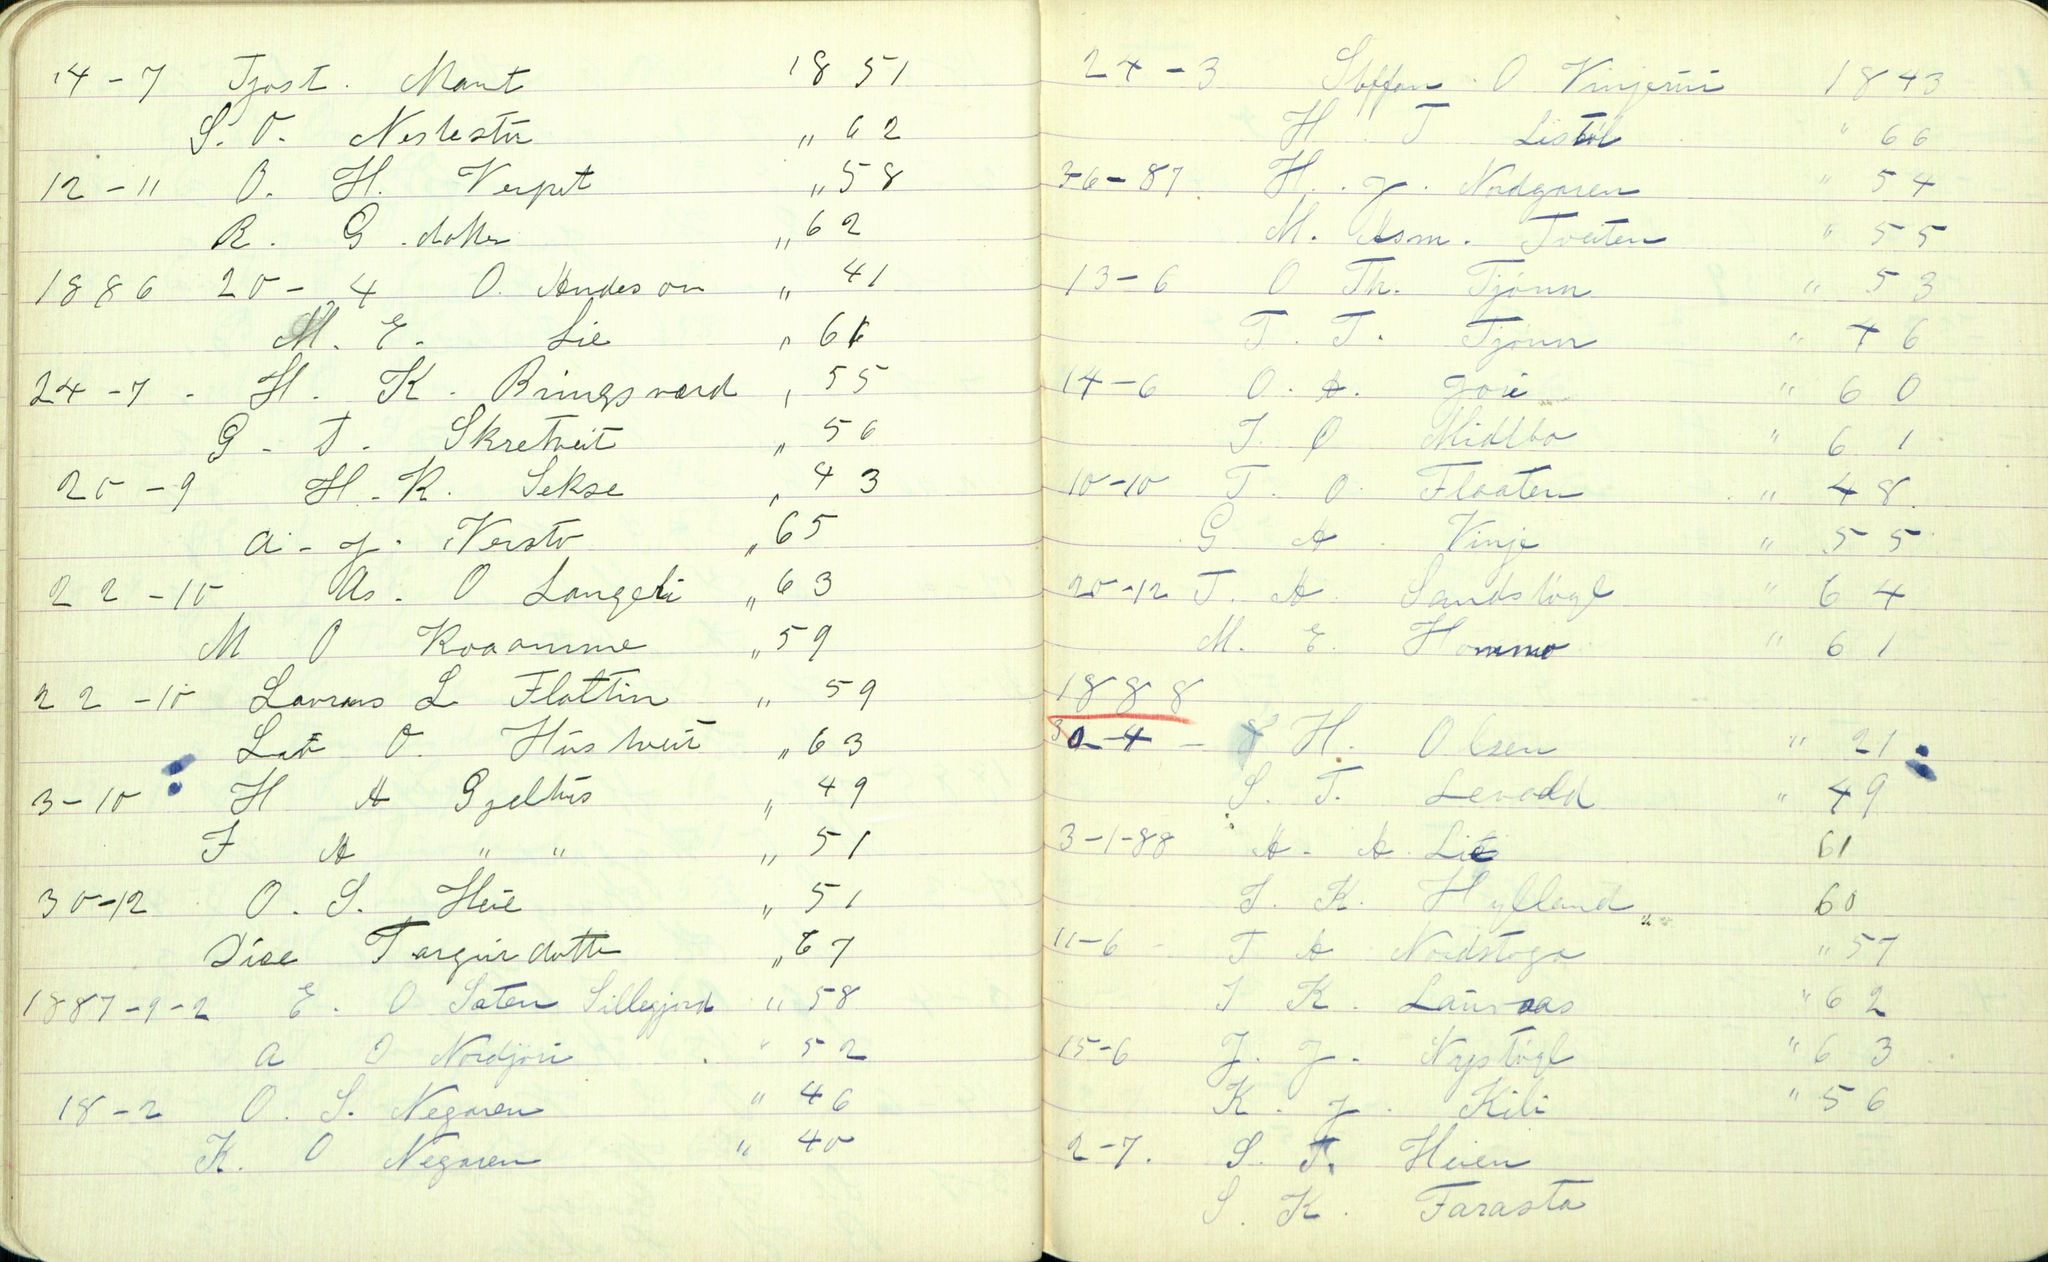 14-7 Tjost. Mant 1851
S. O. Neslestu " 62
12-11 O. H. Verpet " 58
R. G. " 62
1886 20-4 O. Andeson " 41
M. E. Lie " 61
24-7 - H. K. Bringsværd " 55
G. T. Skretveit " 56
20-9 H. K. Sekse " 43
A. J. Versto " 65
22-10 As. O Langeli " 63
M O Kvaamme " 59
22-10 Lavrans L Flattin " 59
O. Hustveit " 63
3-10 H A Gjelhus " 49
F A " " " 51
30-12 O. S. Heie " 51
Targeirdatte " 67
1887-9-2 E. O Saten Sillegjord " 58
A O Nordjori " 52
18-2 O. S. Negaren " 46
K. O Negaren " 40
24-3 Steffan O Vinjerui 1843
H T Listøl " 66
36-87 H. J. Nordgaren " 54
M. Asm. Tveiten " 55
13-6 O Th. Tjönn " 53
T. T. Tjönn " 46
14-6 O. A. Joie " 60
T. O Midtbø " 61
10-10 T. O. Flaaten " 48
G A Vinje " 55
20-12 T. A. Sandstögl " 64
M. E. Hommo " 61
1888
30-4 - H. Olsen " 21
S. T. Levodd " 49
3-1-88 A. A. Lie 61
T. K. Hylland 60
11-6 - T A Nordstoga " 57
T K. Lauvaas " 62
15-6 J. J. Nystögl " 63
K. J. Kili " 56
2-7. S. T. Heien
S. K. Farastø